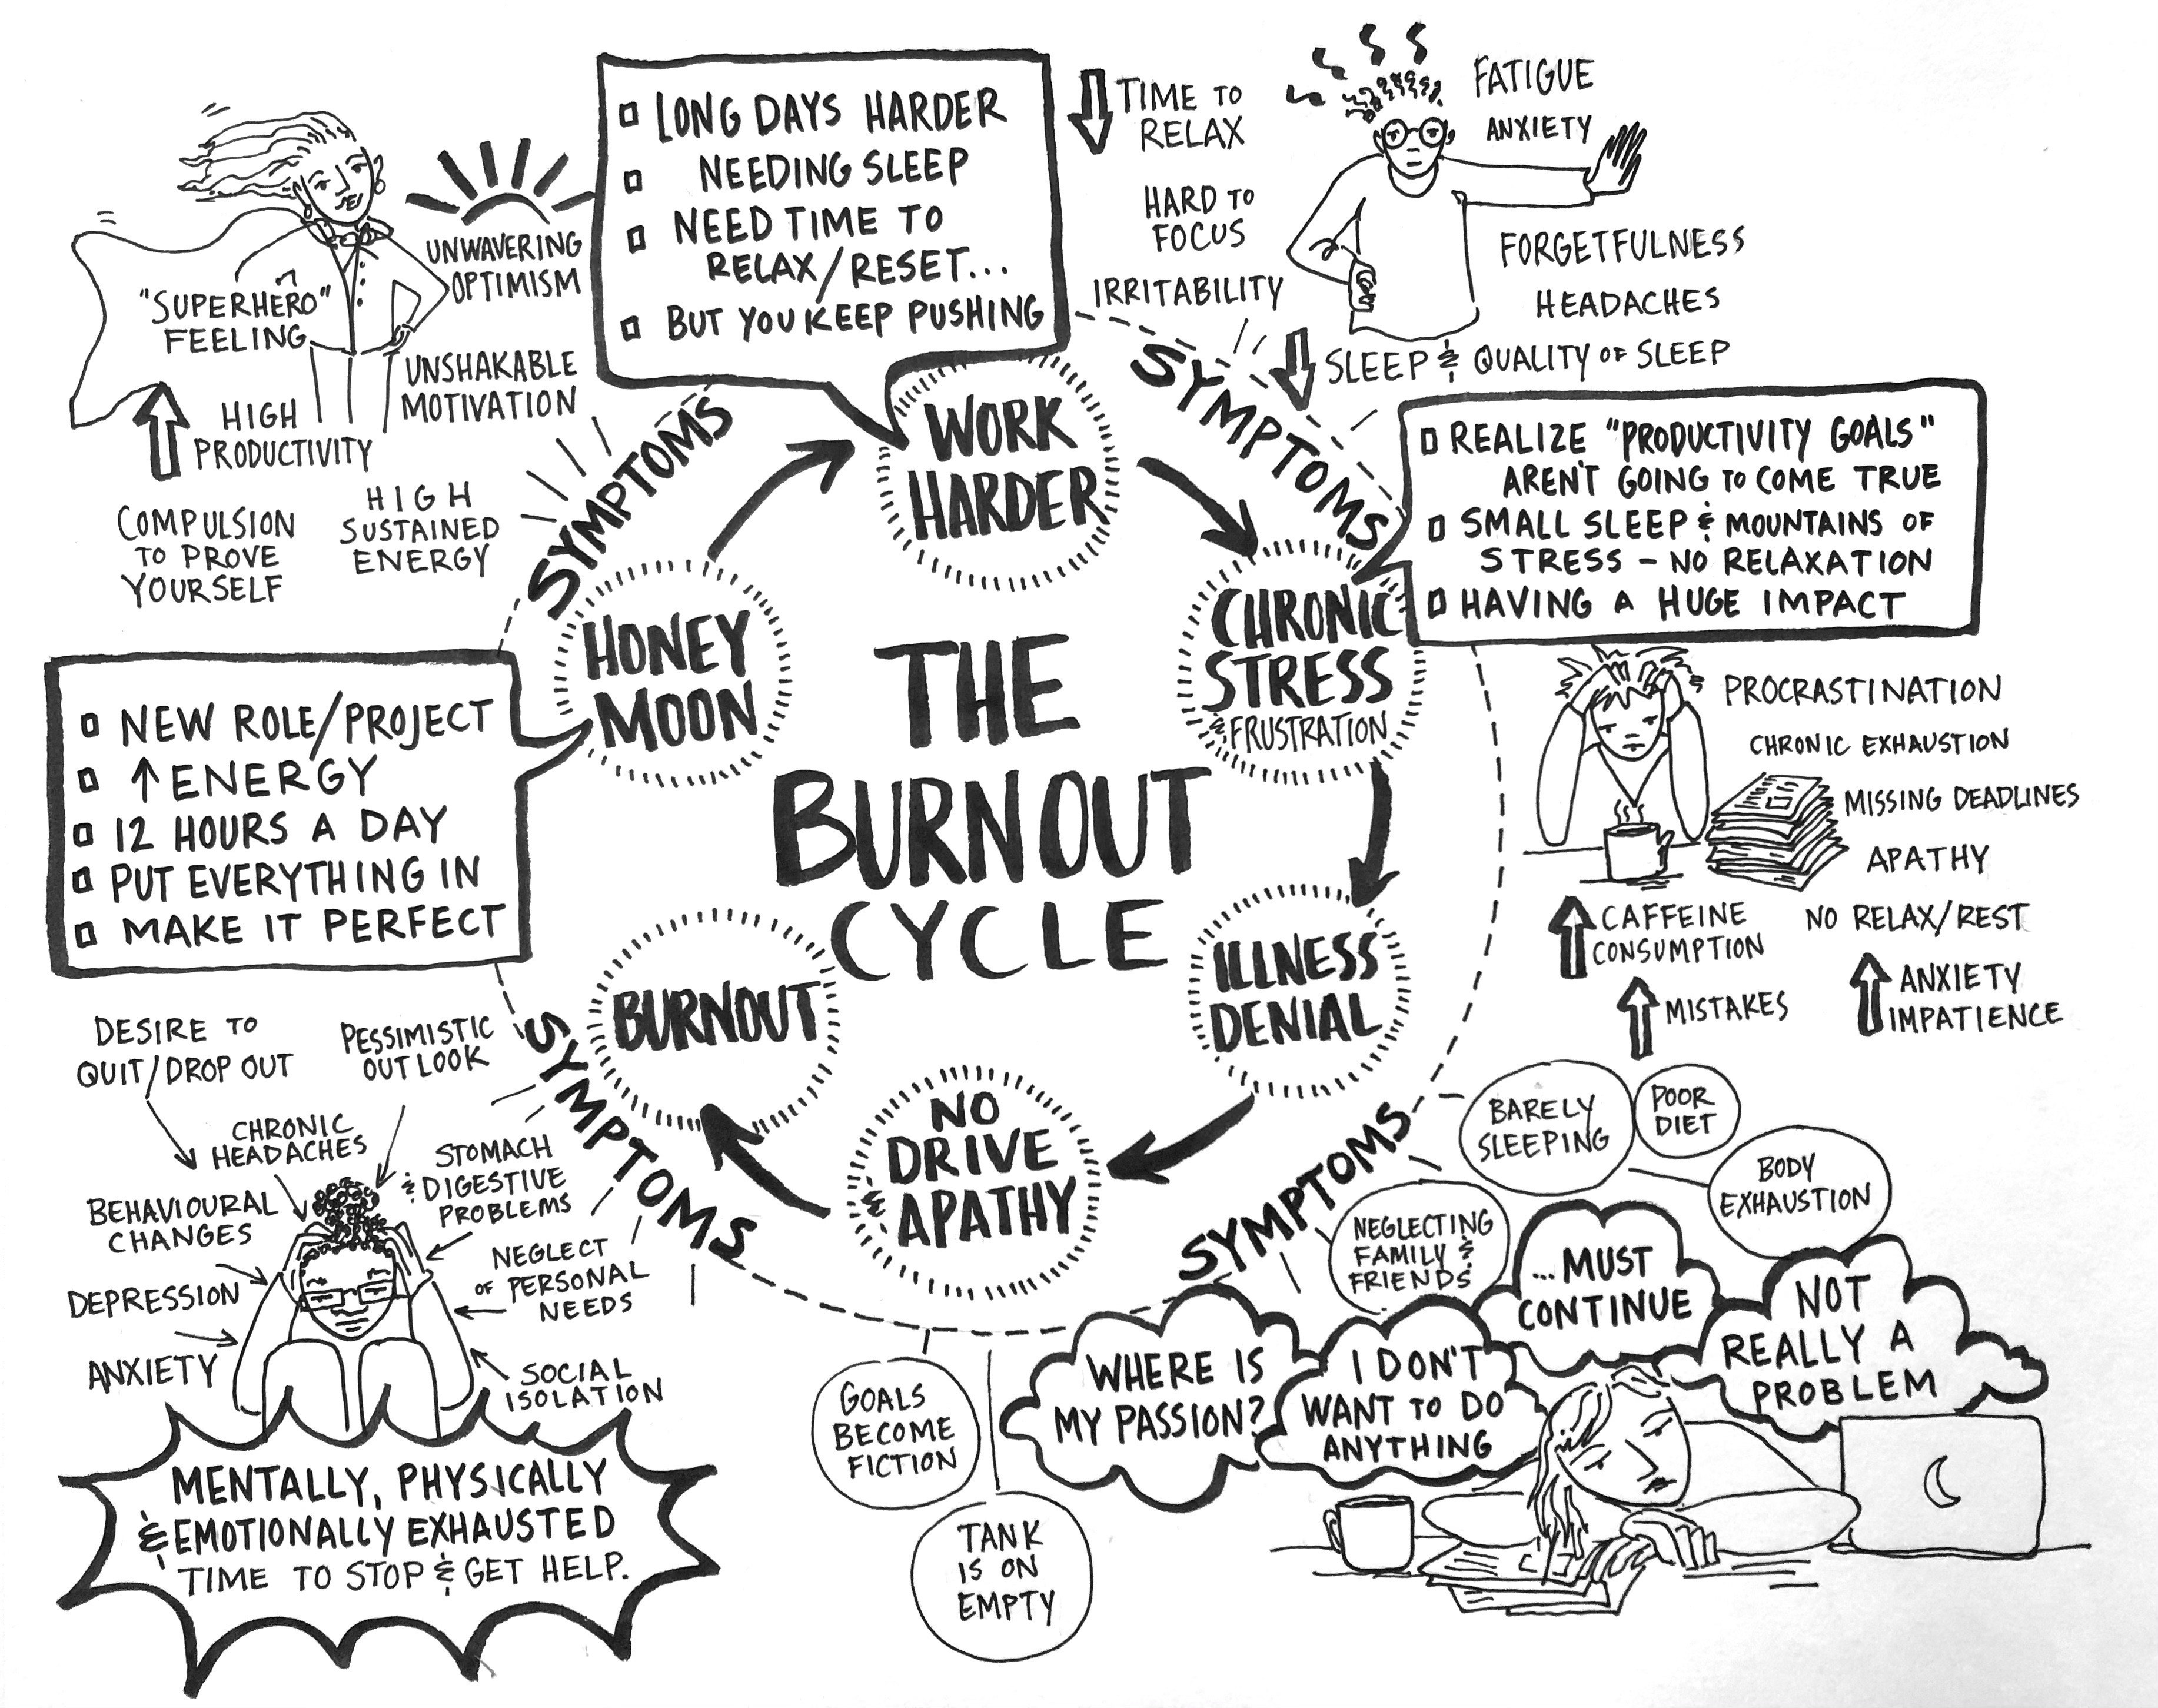 THE
BURNOUT
CYCLE
HONEY
MOON
NEW ROLE/PROJECT
↑ ENERGY
12 HOURS A DAY
PUT EVERYTHING IN
MAKE IT PERFECT
SYMPTOMS
"SUPERHERO"
FEELING
UNWAVERING
OPTIMISM
UNSHAKABLE
MOTIVATION
HIGH
PRODUCTIVITY
COMPULSION
TO PROVE
YOURSELF
HIGH
SUSTAINED
ENERGY
WORK
HARDER
LONG DAYS HARDER
NEEDING SLEEP
NEED TIME TO
RELAX/RESET...
BUT YOU KEEP PUSHING
SYMPTOMS
TIME TO
RELAX
HARD TO
FOCUS
IRRITABILITY
FATIGUE
ANXIETY
FORGETFULNESS
HEADACHES
SLEEP & QUALITY OF SLEEP
CHRONIC
STRESS
& FRUSTRATION
REALIZE "PRODUCTIVITY GOALS"
AREN'T GOING TO COME TRUE
SMALL SLEEP & MOUNTAINS OF
STRESS - NO RELAXATION
HAVING A HUGE IMPACT
PROCRASTINATION
CHRONIC EXHAUSTION
MISSING DEADLINES
APATHY
CAFFEINE
CONSUMPTION
NO RELAX/REST
MISTAKES
ANXIETY
IMPATIENCE
ILLNESS
DENIAL
SYMPTOMS
BARELY
SLEEPING
POOR
DIET
BODY
EXHAUSTION
NEGLECTING
FAMILY &
FRIENDS
...MUST
CONTINUE
NOT
REALLY A
PROBLEM
WHERE IS
MY PASSION?
I DON'T
WANT TO DO
ANYTHING
NO
DRIVE
& APATHY
GOALS
BECOME
FICTION
TANK
IS ON
EMPTY
BURNOUT
SYMPTOMS
DESIRE TO
QUIT/DROP OUT
PESSIMISTIC
OUTLOOK
CHRONIC
HEADACHES
STOMACH
& DIGESTIVE
PROBLEMS
BEHAVIOURAL
CHANGES
NEGLECT
OF PERSONAL
NEEDS
DEPRESSION
ANXIETY
SOCIAL
ISOLATION
MENTALLY, PHYSICALLY
& EMOTIONALLY EXHAUSTED
TIME TO STOP & GET HELP.